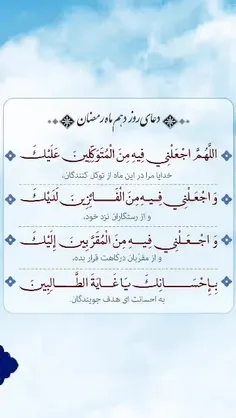 دعای روز دهم ماه رمضان
اللّهُمَّ اجْعَلْنِي فِيهِ مِنَ الْمُتَوَكِّلِينَ عَلَيْكَ
خدایا مرا در این ماه از توکل کنندگان،
وَ اجْعَلْنِي فِيهِ مِنَ الْفَائِزِينَ لَدَيْكَ
و از رستگاران نزد خود،
وَ اجْعَلْنِي فِيهِ مِنَ الْمُقَرَّبِينَ إِلَيْكَ
و از مقرّبان درگاهت قرار بده،
بِإِحْسَانِكَ يَا غَايَةَ الطَّالِبِينَ
به احسانت ای هدف جویندگان.